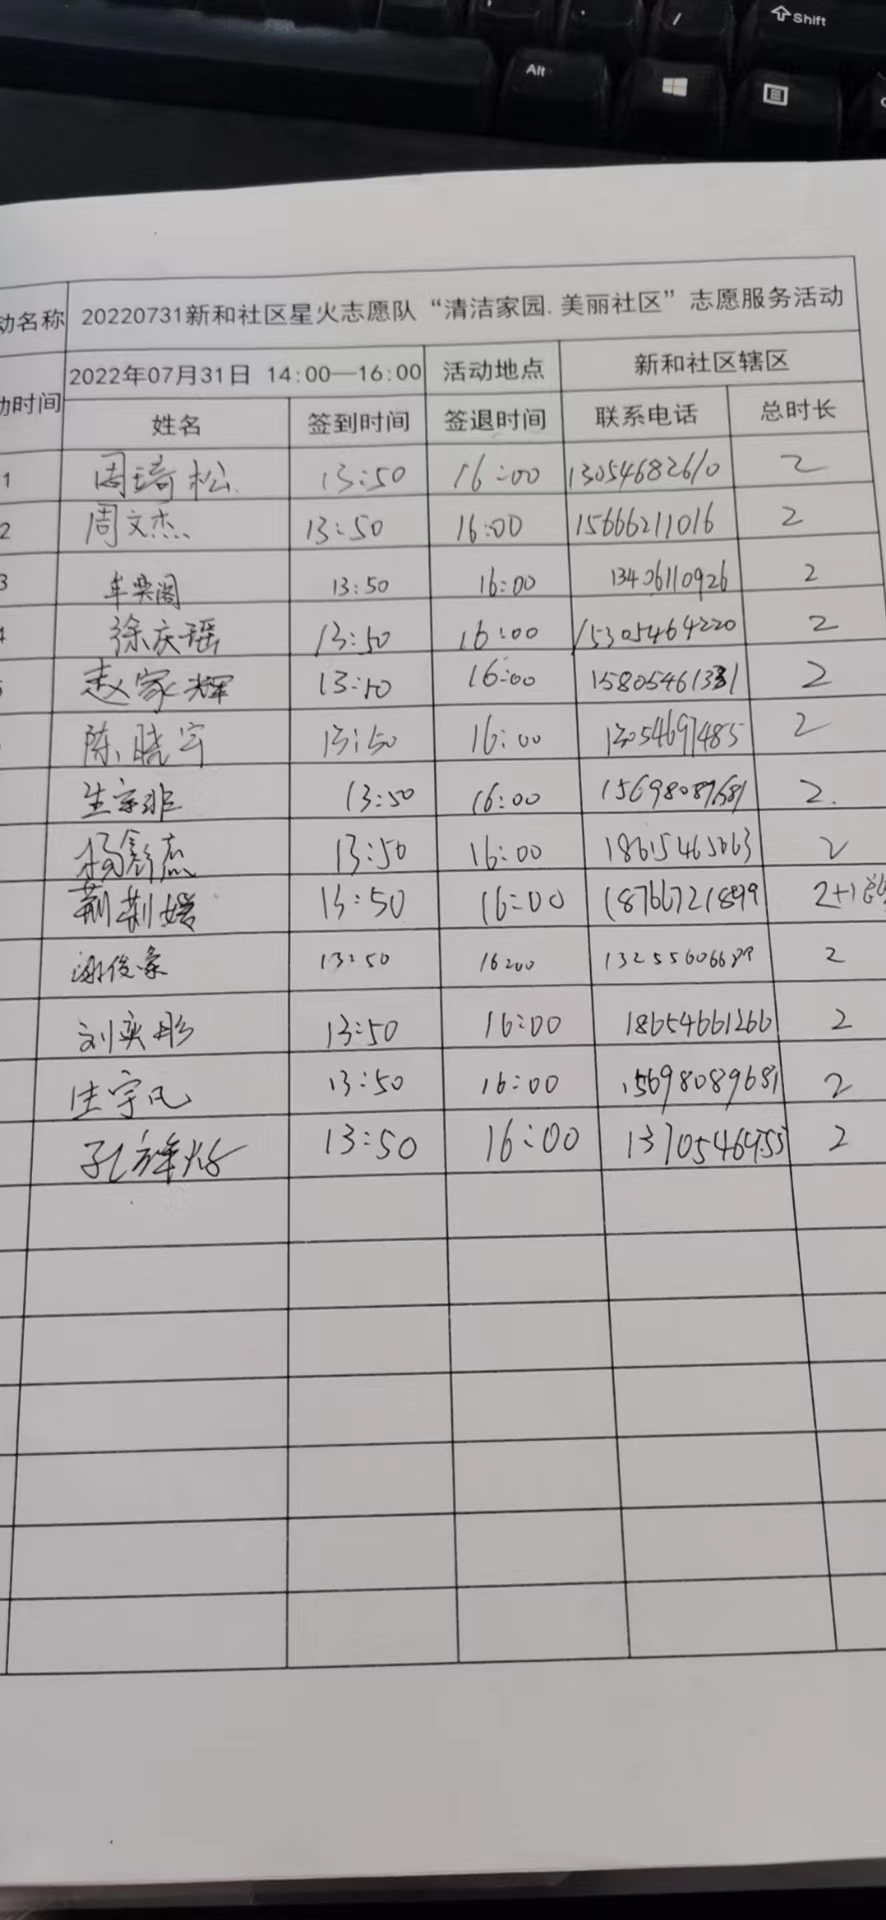 Shift
Alt
动名称 20220731新和社区星火志愿队“清洁家园.美丽社区”志愿服务活动
动时间 2022年07月31日 14:00—16:00 活动地点 新和社区辖区
姓名 签到时间 签退时间 联系电话 总时长
1 周琦松 13:50 16:00 13054682610 2
2 周文杰 13:50 16:00 15666211016 2
3 牟奕阁 13:50 16:00 13406110926 2
4 徐庆瑶 13:50 16:00 15305464220 2
赵家辉 13:50 16:00 2
陈晓宇 13:50 16:00 13054697485 2
生宗非 13:50 16:00 2.
杨 13:50 16:00 2
荆荆媛 13:50 16:00 18766721899 2+1
谢俊豪 13:50 16:00 2
刘奕彤 13:50 16:00 18654661266 2
生宇凡 13:50 16:00 15698089681 2
孔 13:50 16:00 2